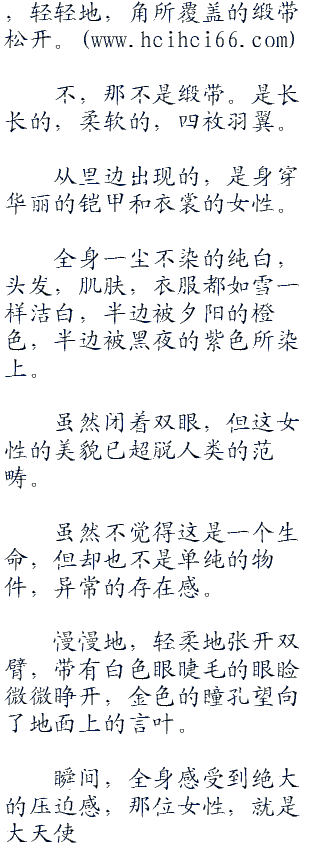 ，轻轻地，角所覆盖的缎带
松开。(www.hcihci66.com)
不，那不是缎带。是长
长的，柔软的，四枚羽翼。
从里边出现的，是身穿
华丽的铠甲和衣裳的女性。
全身一尘不染的纯白，
头发，肌肤，衣服都如雪一
样洁白，半边被夕阳的橙
色，半边被黑夜的紫色所染
上。
虽然闭着双眼，但这女
性的美貌已超脱人类的范
畴。
虽然不觉得这是一个生
命，但却也不是单纯的物
件，异常的存在感。
慢慢地，轻柔地张开双
臂，带有白色眼睫毛的眼睑
微微睁开，金色的瞳孔望向
了地面上的言叶。
瞬间，全身感受到绝大
的压迫感，那位女性，就是
大天使